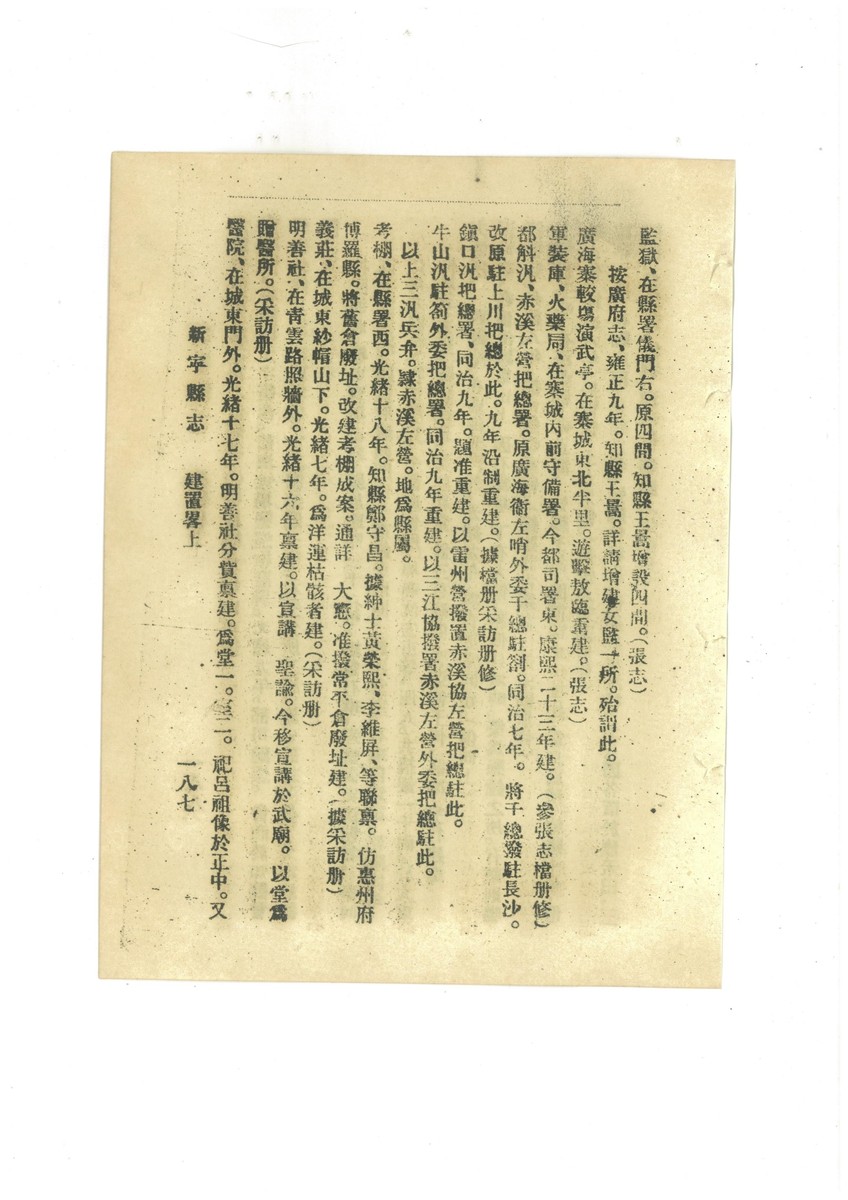 監獄、在縣署儀門右。原四間。知縣王暠增設四間。（張志）
按廣府志、雍正九年。知縣王暠。詳請增建女監一所。殆謂此。
廣海寨較塲演武亭。在寨城東北半里。遊擊敖臨重建。（張志）
軍裝庫、火藥局、在寨城內前守備署。今都司署東。康熙二十三年建。（參張志檔册修）
都斛汛、赤溪左營把總署。原廣海衞左哨外委千總駐劄。同治七年。將千總撥駐長沙。
改原駐上川把總於此。九年沿制重建。（據檔册采訪册修）
鎭口汛把總署、同治九年。題准重建。以雷州營撥置赤溪協左營把總駐此。
牛山汛駐劄外委把總署。同治九年重建。以三江協撥署赤溪左營外委把總駐此。
以上三汛兵弁。隸赤溪左營。地爲縣屬。
考棚、在縣署西。光緒十八年。知縣鄭守昌。據紳士黃榮熙、李維屏、等聯禀。仿惠州府
博羅縣。將舊倉廢址。改建考棚成案。通詳　大憲。准撥常平倉廢址建。（據采訪册）
義莊、在城東紗帽山下。光緒七年。爲洋運枯骸者建。（采訪册）
明善社、在靑雲路照牆外。光緒十六年禀建。以宣講　聖諭。今移宣講於武廟。以堂爲
贈醫所。（采訪册）
醫院、在城東門外。光緒十七年。明善社分貲禀建。爲堂一。室二。祀呂祖像於正中。又
新寧縣志　建置畧上　一八七